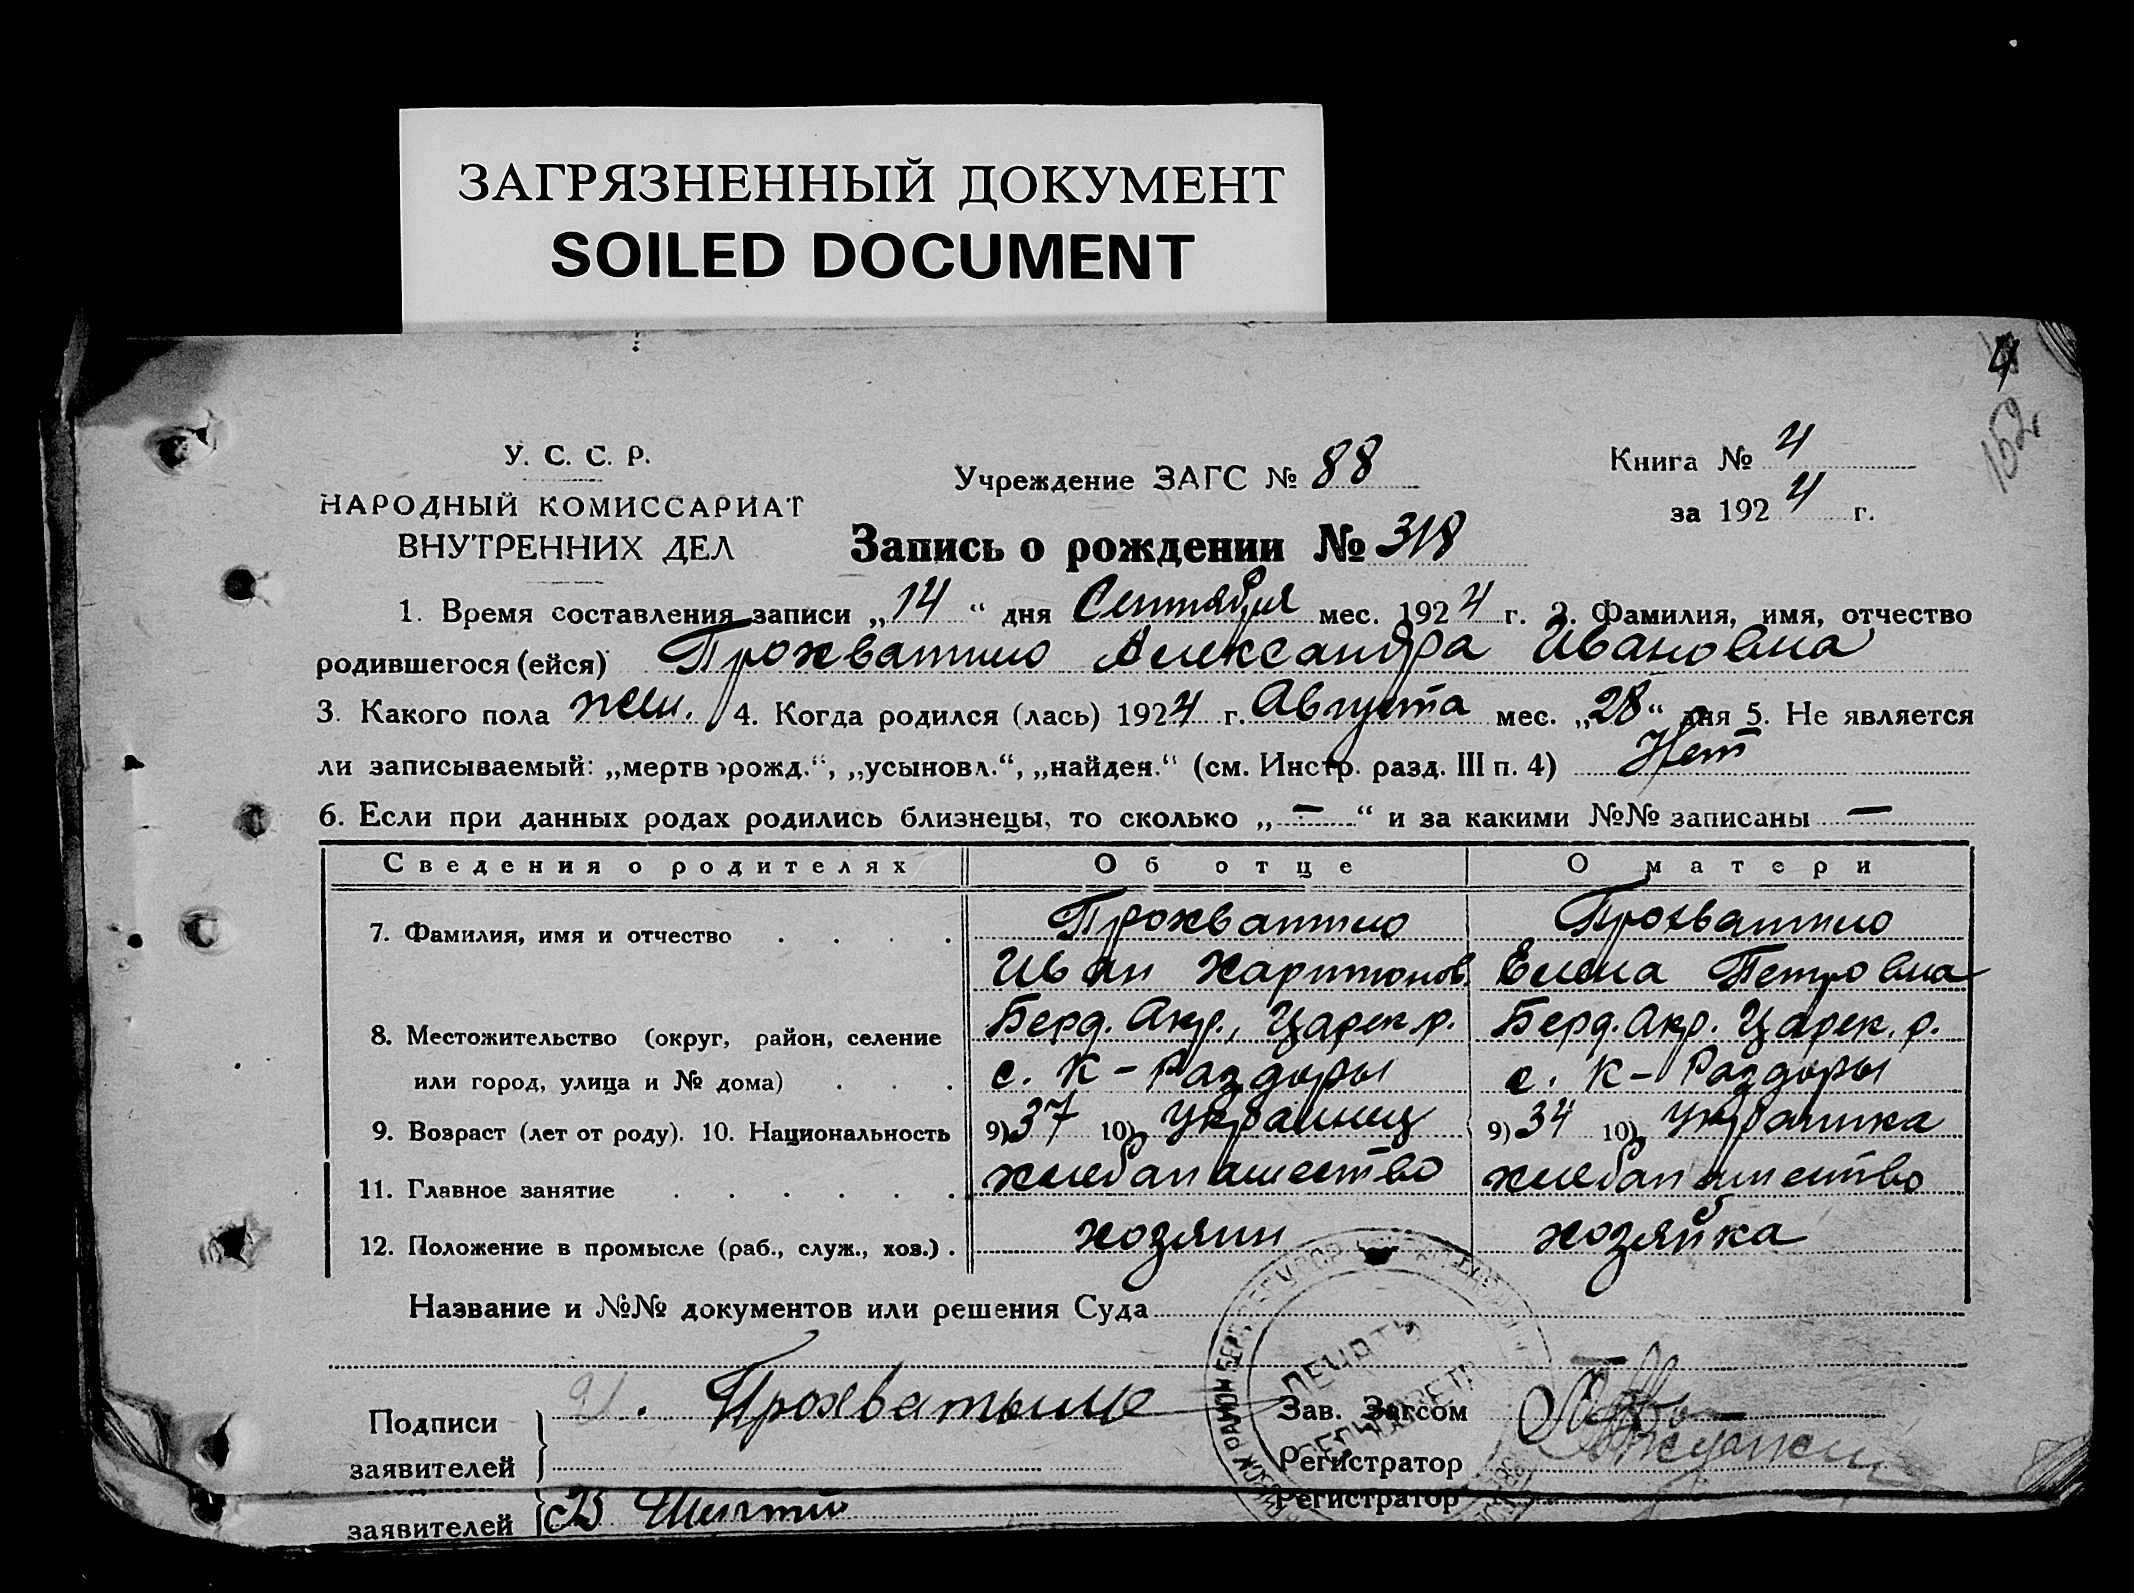 ЗАГРЯЗНЕННЫЙ ДОКУМЕНТ
SOILED DOCUMENT
4
162
У. С. С. Р.
НАРОДНЫЙ КОМИССАРИАТ
ВНУТРЕННИХ ДЕЛ
Учреждение ЗАГС № 88
Книга № 4
за 1924 г.
Запись о рождении № 318
1. Время составления записи „14“ дня Сентября мес. 1924 г. 2. Фамилия, имя, отчество
родившегося (ейся) Прохватило Александра Ивановна
3. Какого пола жен. 4. Когда родился (лась) 1924 г. Августа мес. „28“ дня 5. Не является
ли записываемый: „мертворожд.“, „усыновл.“, „найден.“ (см. Инстр. разд. III п. 4) Нет
6. Если при данных родах родились близнецы, то сколько „—“ и за какими №№ записаны —
Сведения о родителях Об отце О матери
7. Фамилия, имя и отчество . . . . Прохватило Прохватило
Иван Харитонов. Елена Петровна
8. Местожительство (округ, район, селение Берд. Окр., Царек. р. Берд. Окр. Царек. р.
или город, улица и № дома) . . . с. К-Раздоры с. К-Раздоры
9. Возраст (лет от роду). 10. Национальность 9) 37 10) Украинец 9) 34 10) Украинка
11. Главное занятие . . . . . . хлебапашество хлебапашество
12. Положение в промысле (раб., служ., хоз.) . хозяин хозяйка
Название и №№ документов или решения Суда
Подписи
заявителей
Прохватыло
ПЕЧАТЬ
Зав. Загсом
Регистратор
заявителей
Регистратор